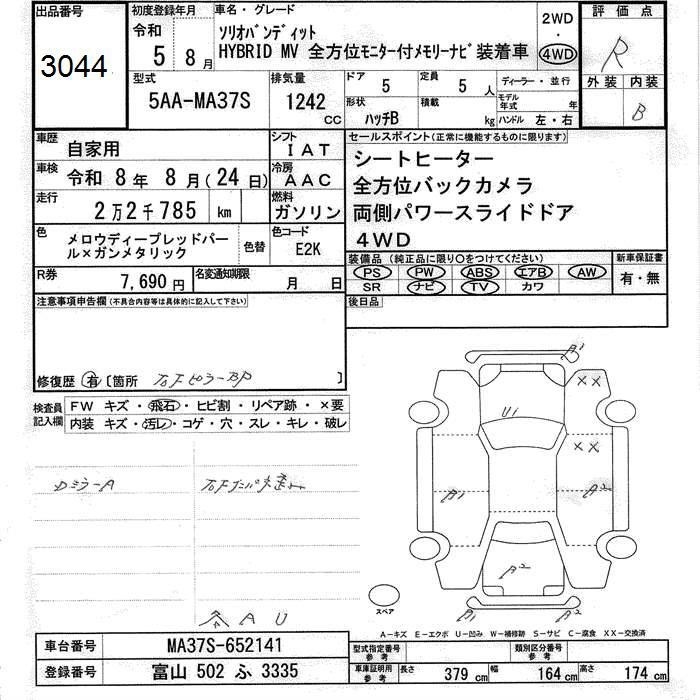 出品番号
3044
初度登録年月
令和
5 8月
車名・グレード
ソリオバンディット
HYBRID MV 全方位モニター付メモリーナビ装着車
2WD
・
4WD
評価点
R
外装 内装
B
型式
5AA-MA37S
排気量
1242
cc
ドア
5
定員
5 人
形状
ハッチB
積載
kg
ディーラー・並行
モデル年式 年
ハンドル 左・右
車歴
自家用
シフト
IAT
車検
令和 8年 8月(24日)
冷房
AAC
走行
2万2千785 km
燃料
ガソリン
色
メロウディープレッドパー
ル×ガンメタリック
色替
色コード
E2K
R券
7,690 円
名変通知期限
月 日
セールスポイント(正常に機能するものに限ります)
シートヒーター
全方位バックカメラ
両側パワースライドドア
4WD
装備品 (純正品に限り〇をつけてください)
PS PW ABS エアB AW
SR ナビ TV カワ
新車保証書
有・無
後日品
注意事項申告欄(不具合内容等は具体的に記入して下さい)
修復歴 有 〔箇所 右FピラーBP 〕
検査員
記入欄
FW キズ・飛石・ヒビ割・リペア跡・×要
内装 キズ・汚レ・コゲ・穴・スレ・キレ・破レ
DミラーA
A U
A1
XX
U1
XX
A1
A2
A2
A1
A2
スペア
A-キズ E-エクボ U-凹み W-補修跡 S-サビ C-腐食 XX-交換済
車台番号
MA37S-652141
登録番号
富山 502 ふ 3335
型式指定番号
参考
類別区分番号
参考
車庫証明用
参考
長さ 379 cm 幅 164 cm 高さ 174 cm